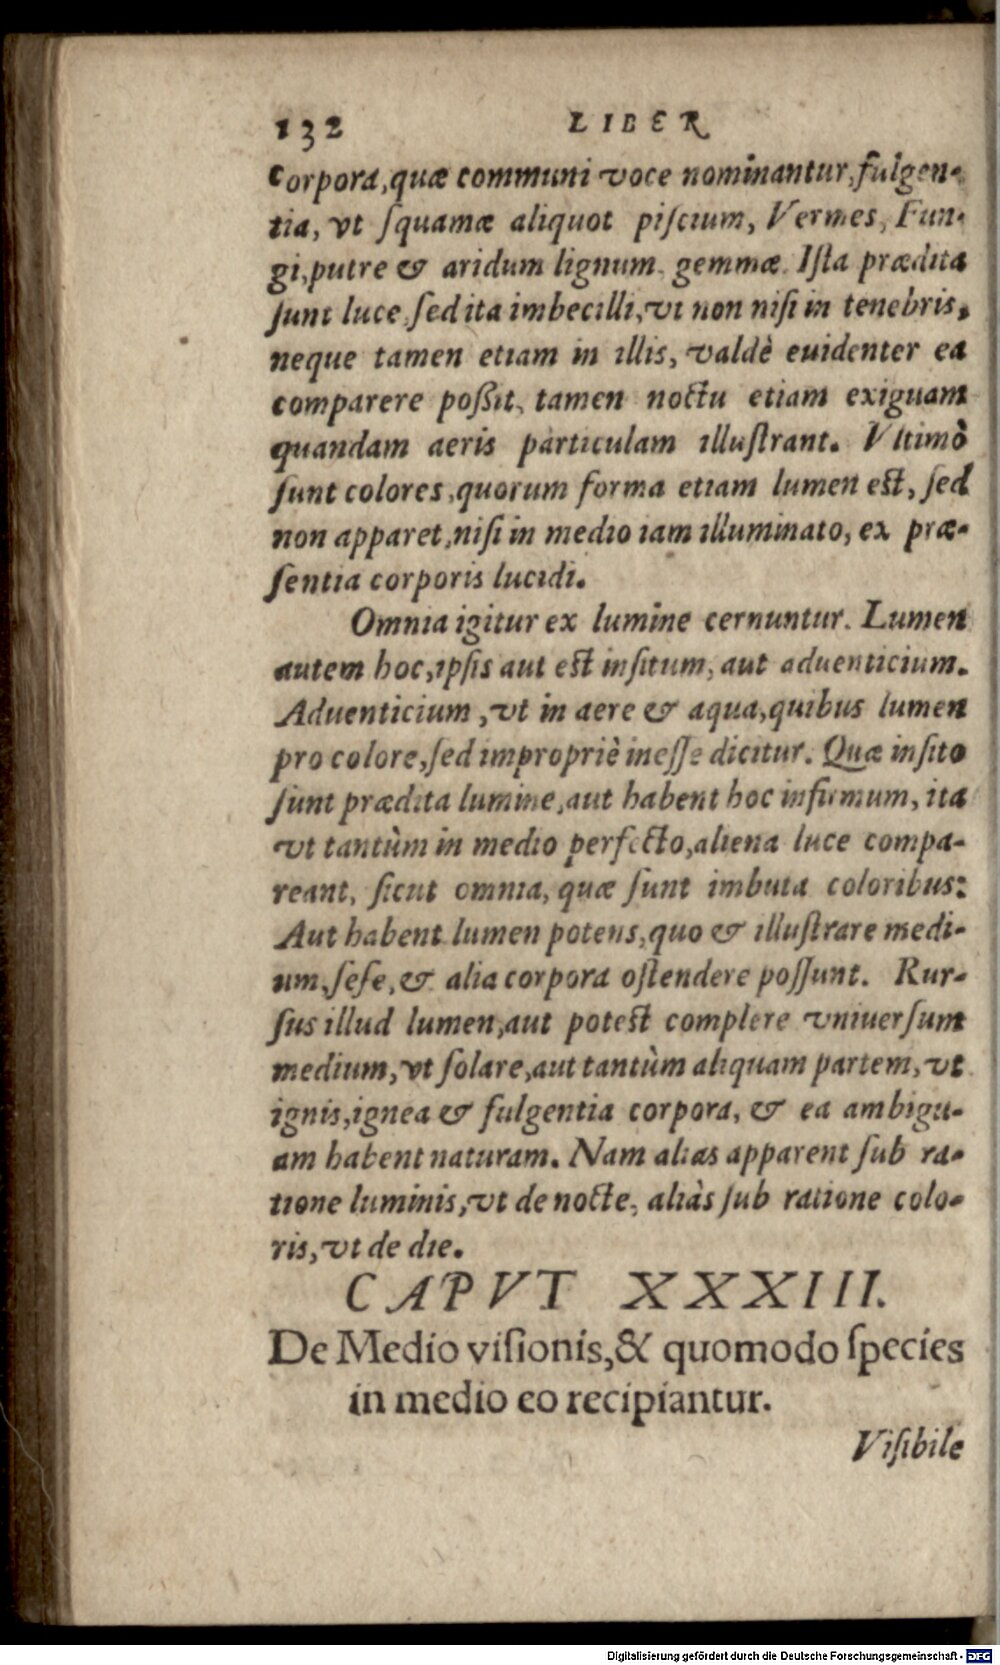 132 LIBER
corpora, quæ communi voce nominantur, fulgen-
tia, vt ſquamæ aliquot piſcium, Vermes, Fun-
gi, putre & aridum lignum, gemmæ. Iſta prædita
ſunt luce, ſed ita imbecilli, vt non niſi in tenebris,
neque tamen etiam in illis, valdè euidenter ea
comparere poßit, tamen noctu etiam exiguam
quandam aeris particulam illuſtrant. Vltimò
ſunt colores, quorum forma etiam lumen eſt, ſed
non apparet, niſi in medio iam illuminato, ex præ-
ſentia corporis lucidi.
Omnia igitur ex lumine cernuntur. Lumen
autem hoc, ipſis aut eſt inſitum, aut aduenticium.
Aduenticium, vt in aere & aqua, quibus lumen
pro colore, ſed impropriè ineſſe dicitur. Quæ inſito
ſunt prædita lumine, aut habent hoc infirmum, ita
vt tantùm in medio perfecto, aliena luce compa-
reant, ſicut omnia, quæ ſunt imbuta coloribus:
Aut habent lumen potens, quo & illuſtrare medi-
um, ſeſe, & alia corpora oſtendere poſſunt. Rur-
ſus illud lumen, aut poteſt complere vniuerſum
medium, vt ſolare, aut tantùm aliquam partem, vt
ignis, ignea & fulgentia corpora, & ea ambigu-
am habent naturam. Nam alias apparent ſub ra-
tione luminis, vt de nocte, aliàs ſub ratione colo-
ris, vt de die.
CAPVT XXXIII.
De Medio viſionis, & quomodo ſpecies
in medio eo recipiantur.
Viſibile
Digitalisierung gefördert durch die Deutsche Forschungsgemeinschaft - DFG